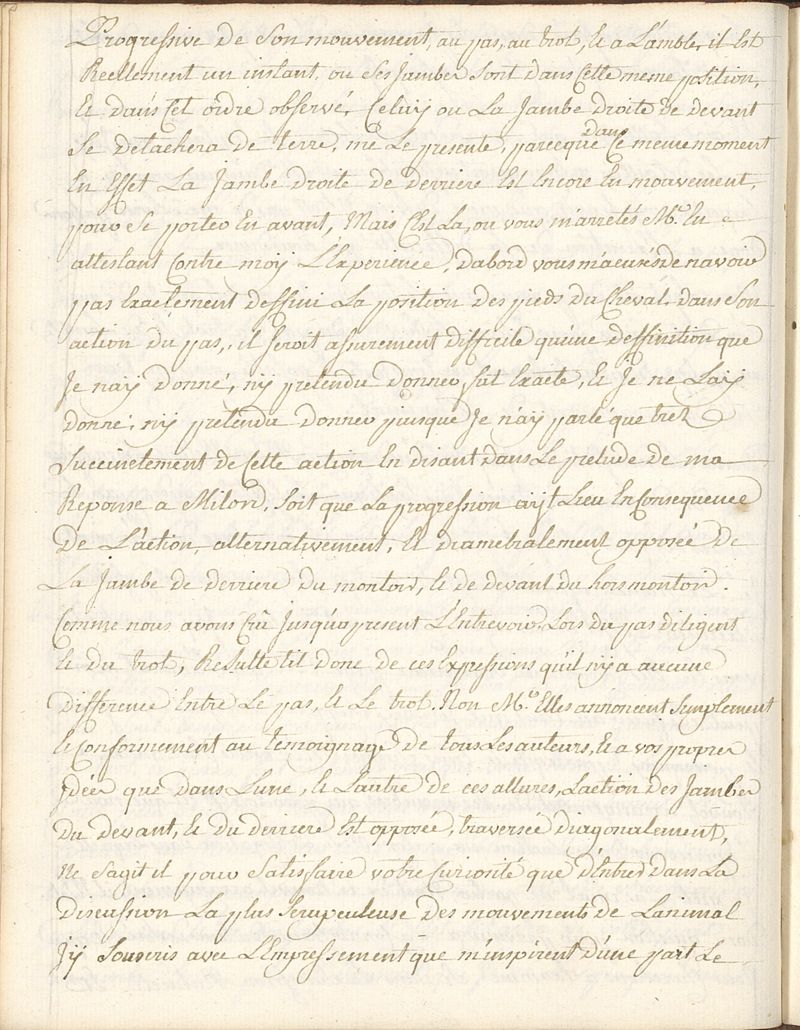 Progressive de Son mouvement, au pas, au trot, & a L'amble, il Est
Reellement un instant, ou Ses Jambes Sont dans Cette meme position,
Et dans Cet ordre observé, Celuy ou La Jambe Droite de devant
Se detachera de terre, me Le presente, parceque dans Ce meme moment
En Effet La Jambe Droite de derriere Est Encore En mouvement,
pour Se porter En avant, Mais C'est La, ou vous m'arretés Mr. En
attestant Contre moy L'Experience, d'abord vous m'accusés de n'avoir
pas Exactement deffini La position des pieds du Cheval dans Son
action du pas, il Seroit assurement difficile qu'une deffinition que
Je n'ay Donné, ny pretendu donner, fut Exacte, & Je ne L'ay
donné, ny pretendu donner puisque Je n'ay parlé que tres
Succinctement de Cette action En disant dans Le prelude de ma
Reponse a Milord, Soit que La progression ayt Lieu En Consequence
De L'action, alternativement, Et diametralement opposée de
La Jambe de derriere du montoir, & de devant du hors montoir.
Comme nous avons Crû Jusqu'a present L'Entrevoir Lors du pas diligent
& du trot, Resulte t'il donc de ces Expressions qu'il n'y a aucune
Difference Entre Le pas, & Le trot. Non Mr. Elles annoncent Simplement
& Conformement au temoignage de tous Les auteurs, & a vos propres
Idées que dans L'une, & L'autre de ces allures, L'action des Jambes
Du devant, & du derriere Est opposée, traversée Diagonalement,
Ne S'agit il pour Satisfaire votre Curiosité que d'Entrer dans La
Discussion La plus Scrupuleuse des mouvements de L'animal
J'y Souscris avec L'Empressement que m'inspirent d'une part Le